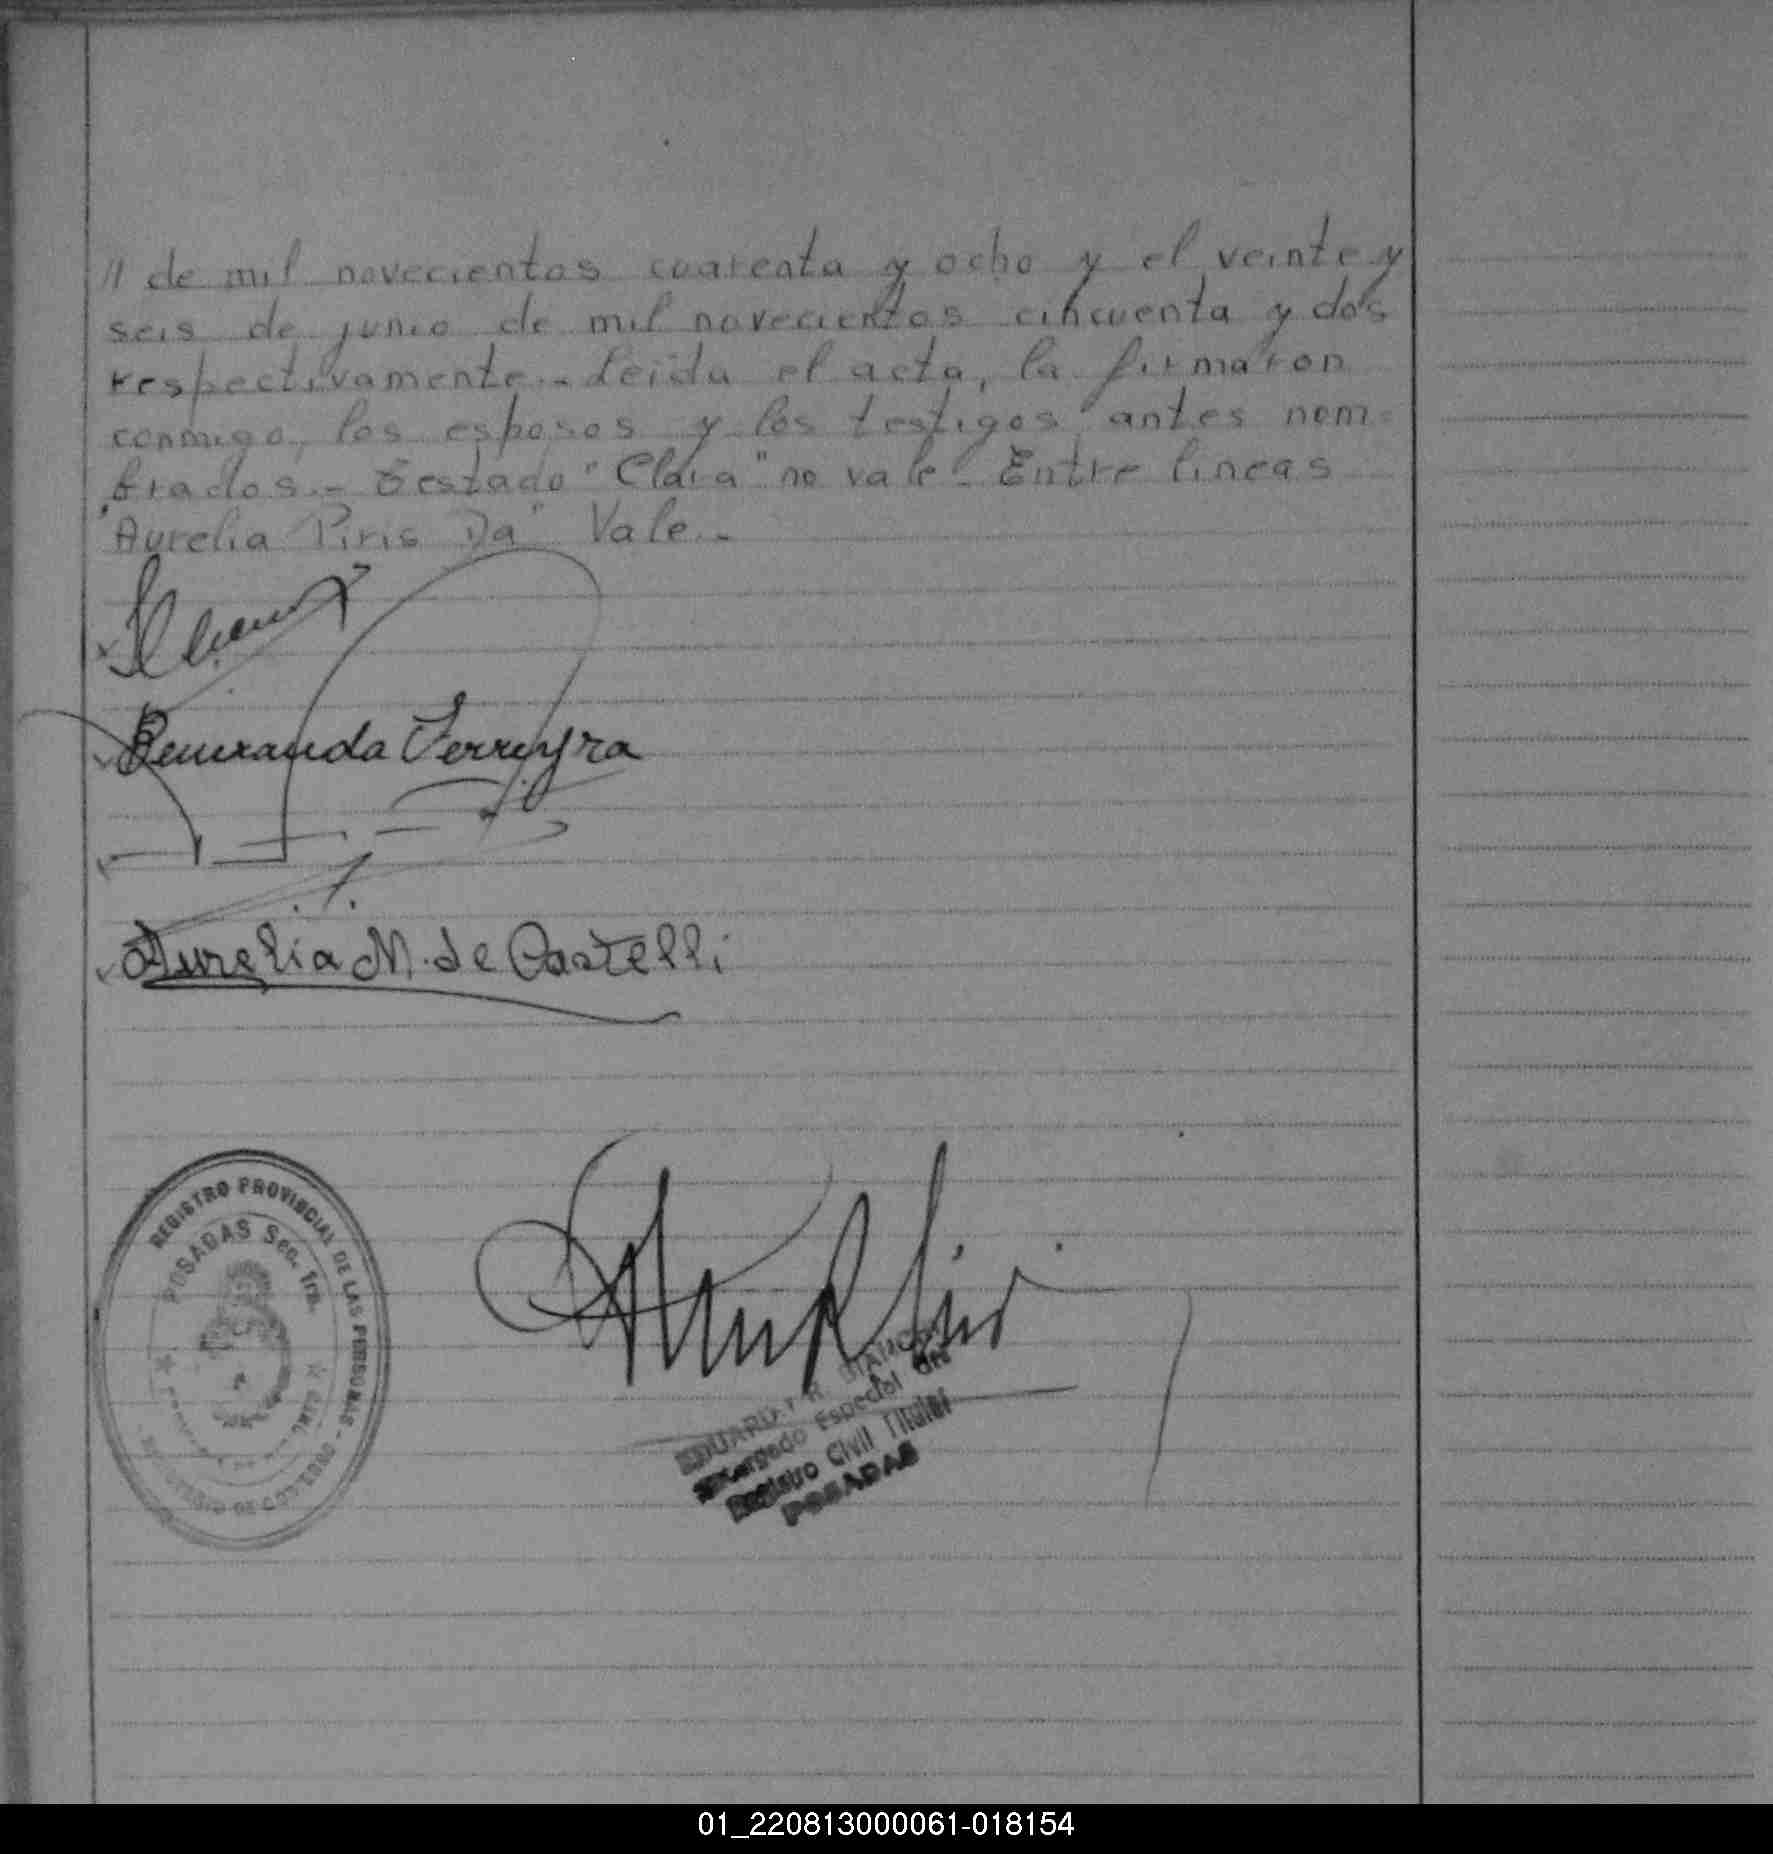 // de mil novecientos cuarenta y ocho y el veinte y
seis de junio de mil novecientos cincuenta y dos
respectivamente.- Leída el acta, la firmaron
conmigo, los esposos y los testigos antes nom-
brados.- Testado "Clara" no vale.- Entre lineas
"Aurelia Piris Da" Vale.-
Remeranda Ferreyra
Aurelia M. de Castelli
REGISTRO PROVINCIAL DE LAS PERSONAS
POSADAS Sec. 1ra.
EDUARDO R.
Encargado Especial del
Registro Civil Titular
POSADAS
01_220813000061-018154